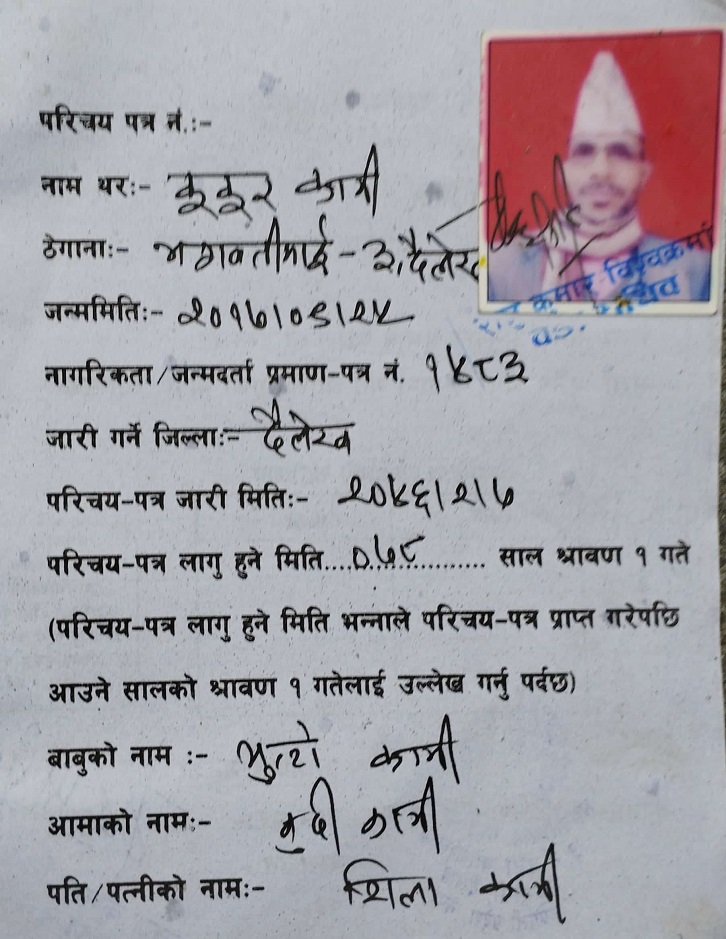 परिचय पत्र नं.:-
नाम थरः- कुकुर कामी
ठेगानाः- भगवतीमाई - ३, दैलेख
जन्ममितिः- २०१७।०९।२४
नागरिकता/जन्मदर्ता प्रमाण-पत्र नं. १४८३
जारी गर्ने जिल्लाः- दैलेख
परिचय-पत्र जारी मितिः- २०४६।२।७
परिचय-पत्र लागु हुने मिति....०७८.............. साल श्रावण १ गते
(परिचय-पत्र लागु हुने मिति भन्नाले परिचय-पत्र प्राप्त गरेपछि
आउने सालको श्रावण १ गतेलाई उल्लेख गर्नु पर्दछ)
बाबुको नाम :- कामी
आमाको नामः- कामी
पति/पत्नीको नामः- शिला कामी
कुमार विश्वकर्मा